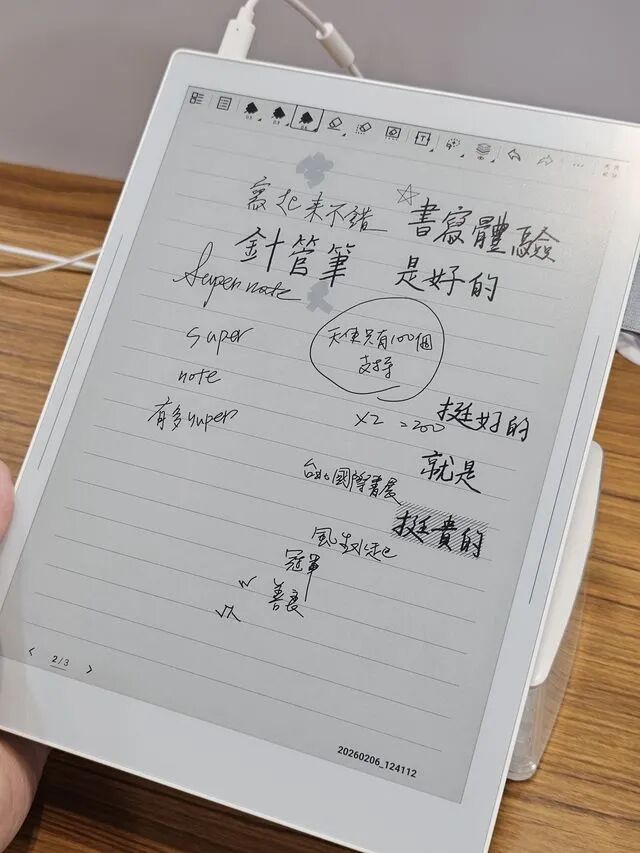 寫起來不錯
☆書寫體驗
針管筆
是好的
Supernote
super
note
有多super
天使只有100個
支持
x2 = 200
挺好的
就是
台北國際書展
挺貴的
風生水起
冠軍
2/3
20260206_124112